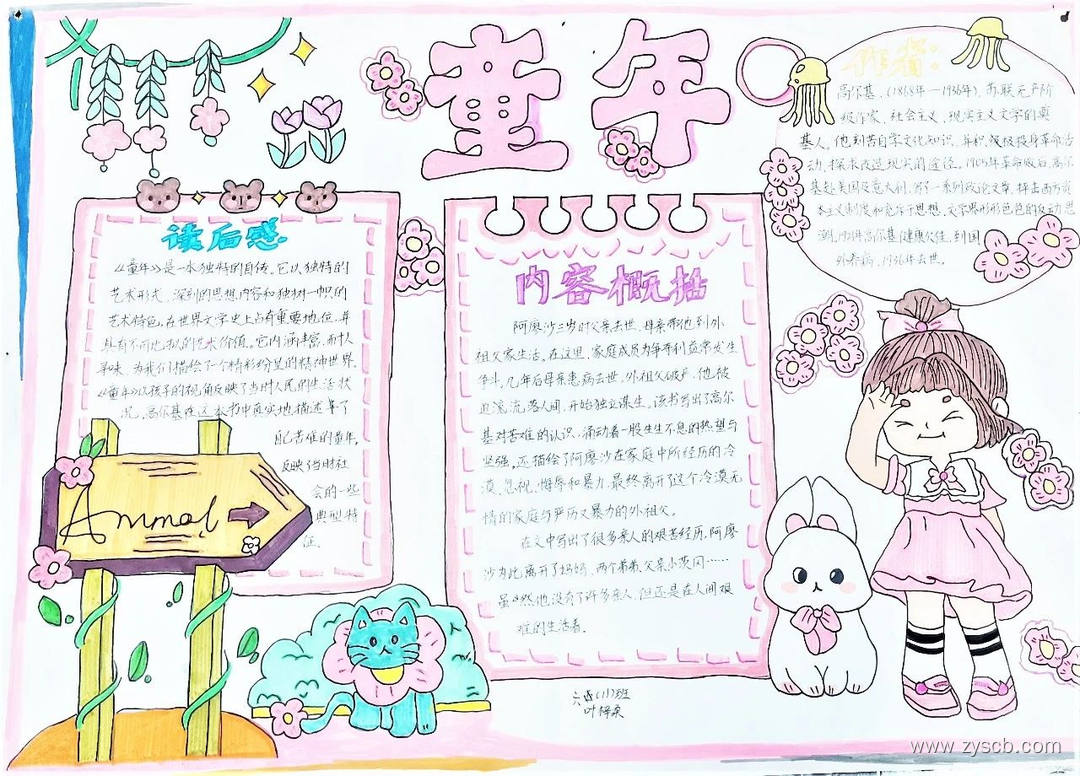 童年
读后感
《童年》是一本独特的自传。它以独特的
艺术形式、深刻的思想内容和独树一帜的
艺术特色，在世界文学史上占有重要地位，并
具有不可比拟的艺术价值。它内涵丰富，耐人
寻味，为我们描绘了一个精彩纷呈的精神世界。
《童年》以孩子的视角反映了当时人民的生活状
况，高尔基在这本书中真实地描述了
自己苦难的童年，
反映了当时社
会的一些
典型特
征。
Anmal
内容概括
阿廖沙三岁时父亲去世，母亲带他到外
祖父家生活，在这里，家庭成员为争夺利益常发生
争斗，几年后母亲患病去世，外祖父破产，他被
迫流落人间，开始独立谋生。该书写出了高尔
基对苦难的认识，涌动着一股生生不息的热望与
坚强，还描绘了阿廖沙在家庭中所经历的冷
漠、忽视、侮辱和暴力，最终离开了这个冷漠无
情的家庭与严厉又暴力的外祖父。
在文中写出了很多亲人的艰苦经历，阿廖
沙为此离开了妈妈、两个弟弟、父亲、小茨冈……
虽然他没有了许多亲人，但还是在人间艰
难的生活着。
作者:
高尔基，(1868年—1936年)，苏联无产阶
级作家，社会主义、现实主义文学的奠
基人。他刻苦自学文化知识，并积极投身革命活
动，探求改造现实的途径。1905年革命败后，高尔
基赴美国及意大利，写了一系列政论文章，抨击西方资
本主义制度和 思想，文学界形形色色的反动思
潮，1921年高尔基健康欠佳，到国
外养病，1936年去世。
六 班
叶
www.zyscb.com